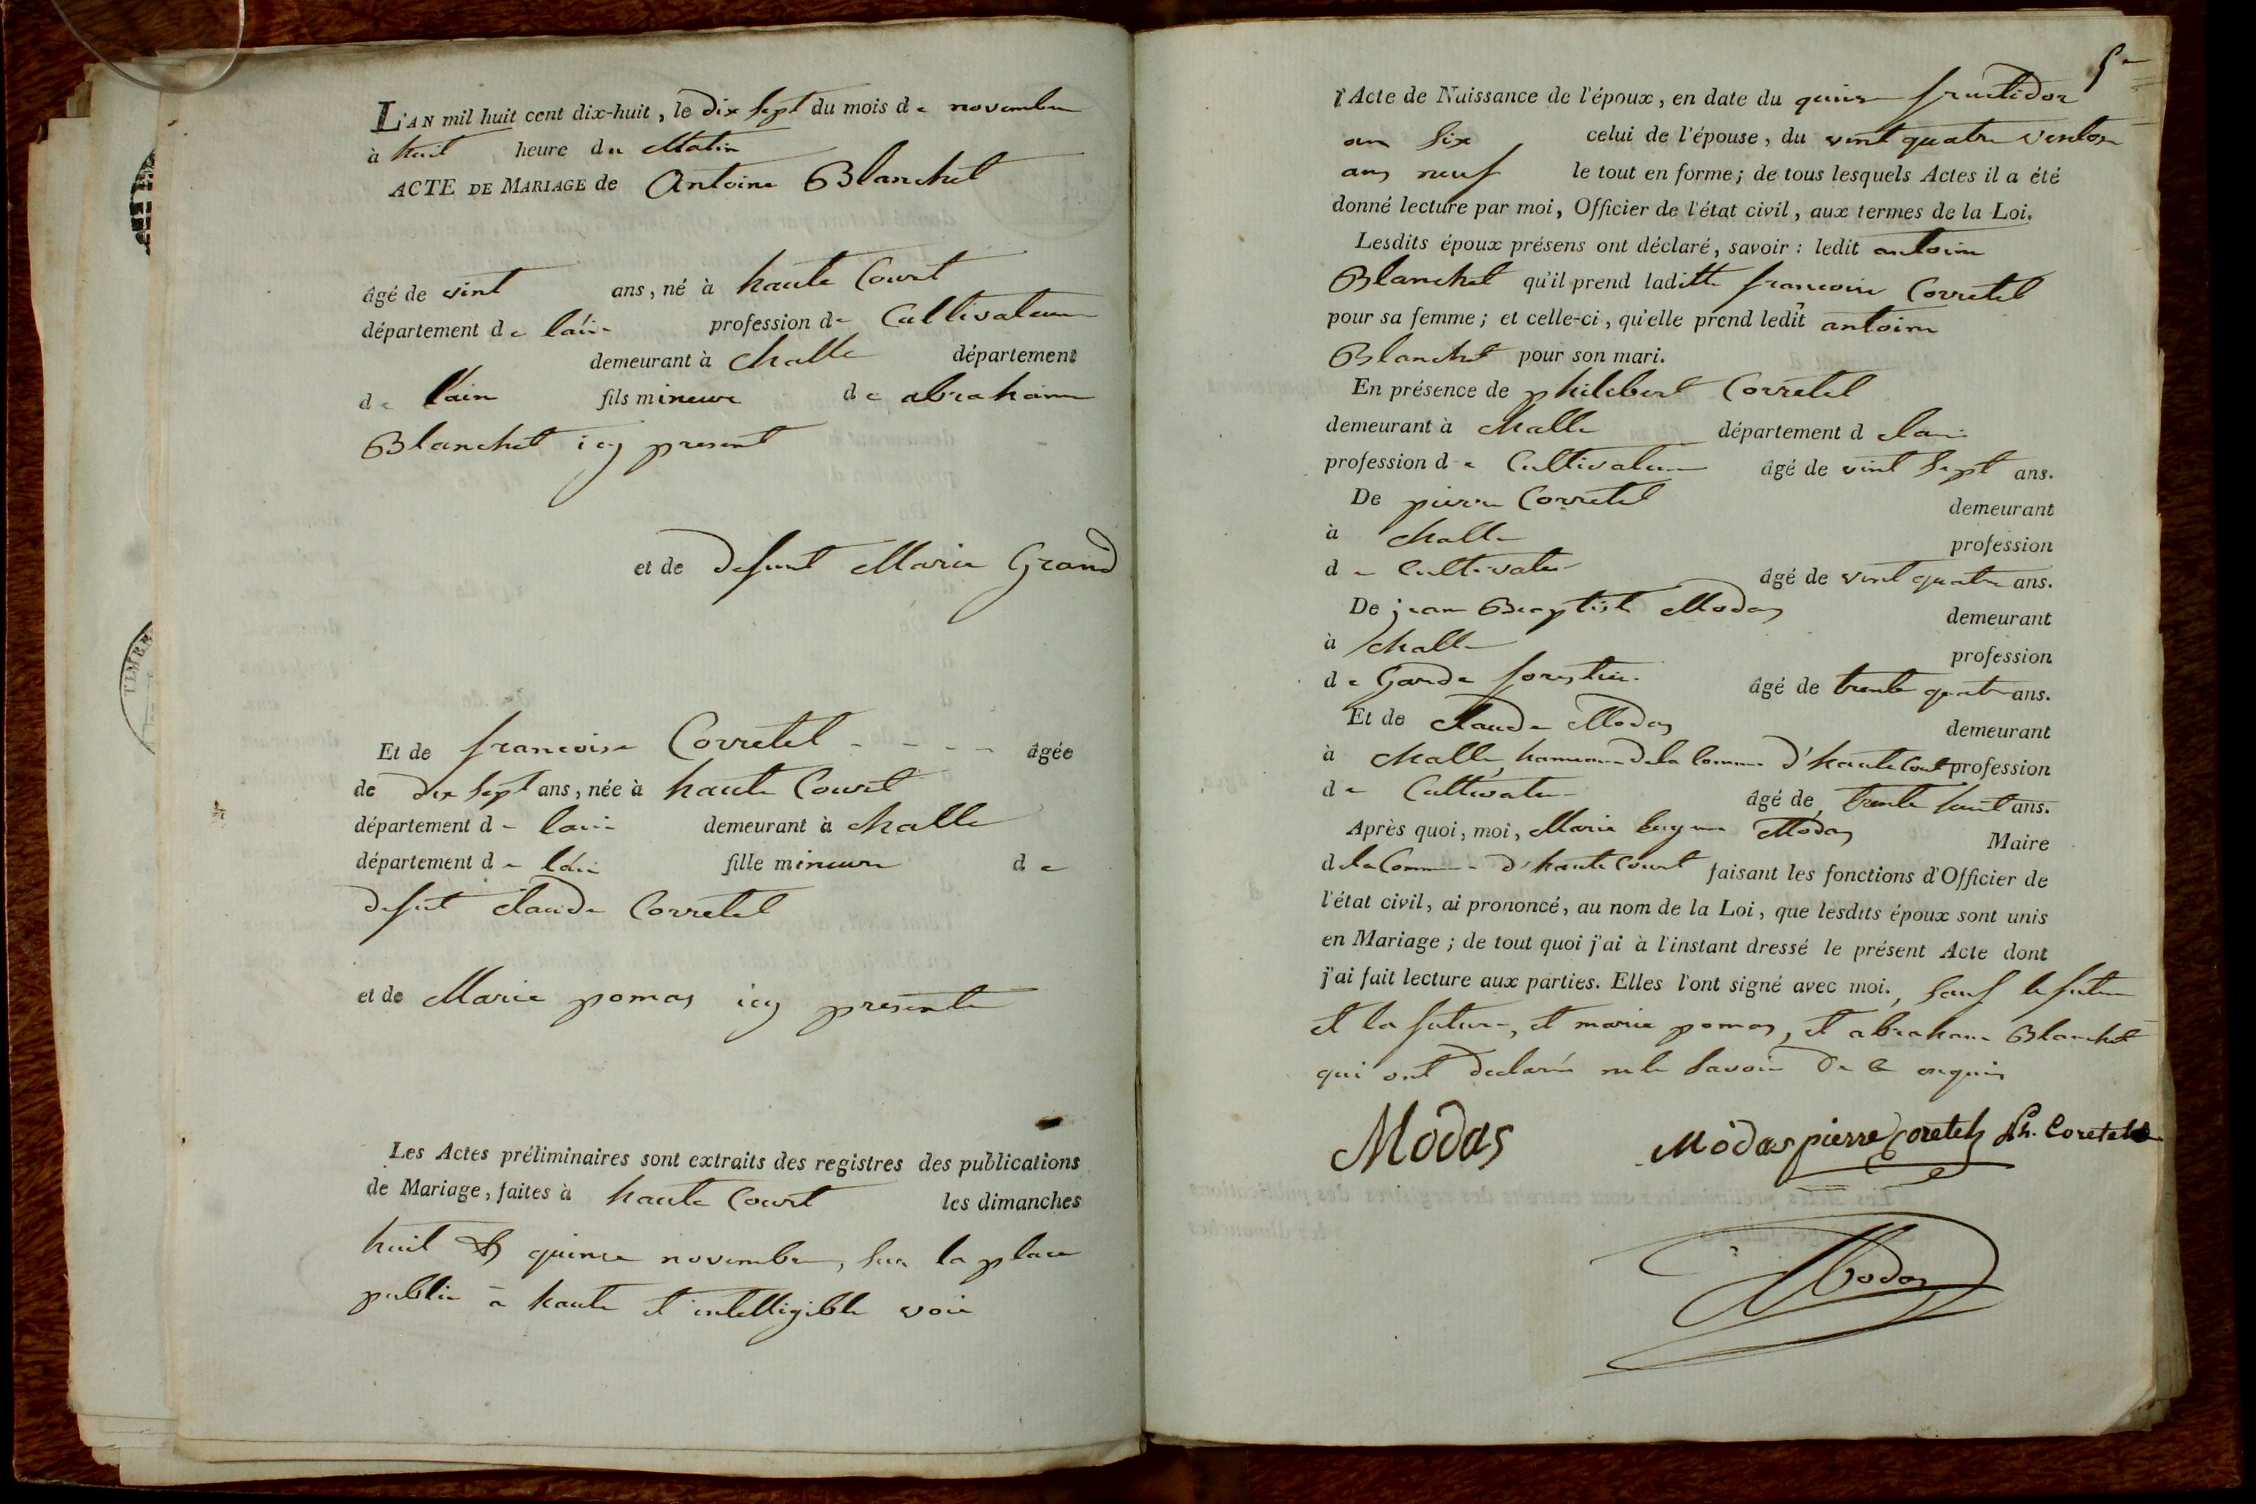 L'AN mil huit cent dix-huit, le dix sept du mois de novembre
à huit heure du Matin
ACTE DE MARIAGE de Antoine Blanchet
âgé de vint ans, né à haute Court
département de lain profession de Cultivateur
demeurant à challe département
de l'ain fils mineur de abraham
Blanchet icy present
et de defunt Marie Grand
Et de francoise Corretel - - - - âgée
de dix sept ans, née à haute Court
département de lain demeurant à challe
département de lain fille mineure de
defut claude Corretel
et de Marie pomas icy presente
Les Actes préliminaires sont extraits des registres des publications
de Mariage, faites à haute Court les dimanches
huit & quinze novembre, sur la place
public a haute et intelligible voie
5
l'Acte de Naissance de l'époux, en date du quinze fructidor
an Six celui de l'épouse, du vint quatre ventose
ans neuf le tout en forme; de tous lesquels Actes il a été
donné lecture par moi, Officier de l'état civil, aux termes de la Loi.
Lesdits époux présens ont déclaré, savoir : ledit antoine
Blanchet qu'il prend laditte francoise Corretel
pour sa femme; et celle-ci, qu'elle prend ledit antoine
Blanchet pour son mari.
En présence de philebert Corretel
demeurant à challe département d lain
profession de Cultivateur âgé de vint sept ans.
De pierre Corretel demeurant
à challe profession
de Cultivateur âgé de vint quatre ans.
De jean Baptiste Modas demeurant
à challe profession
de Garde forestier âgé de trente quatre ans.
Et de Claude Modas demeurant
à challe, hameau de la Commune d'haute Court profession
de Cultivateur âgé de trente huit ans.
Après quoi, moi, Marie Modas Maire
de la Commune d'haute Court faisant les fonctions d'Officier de
l'état civil, ai prononcé, au nom de la Loi, que lesdits époux sont unis
en Mariage; de tout quoi j'ai à l'instant dressé le présent Acte dont
j'ai fait lecture aux parties. Elles l'ont signé avec moi., Sauf le futur
et la future, et marie pomas, et abraham Blanchet
qui ont declaré ne le Savoir de ce enquis
Modas Modas pierre Coretel Ph. Coretel
Modas
TIMBR